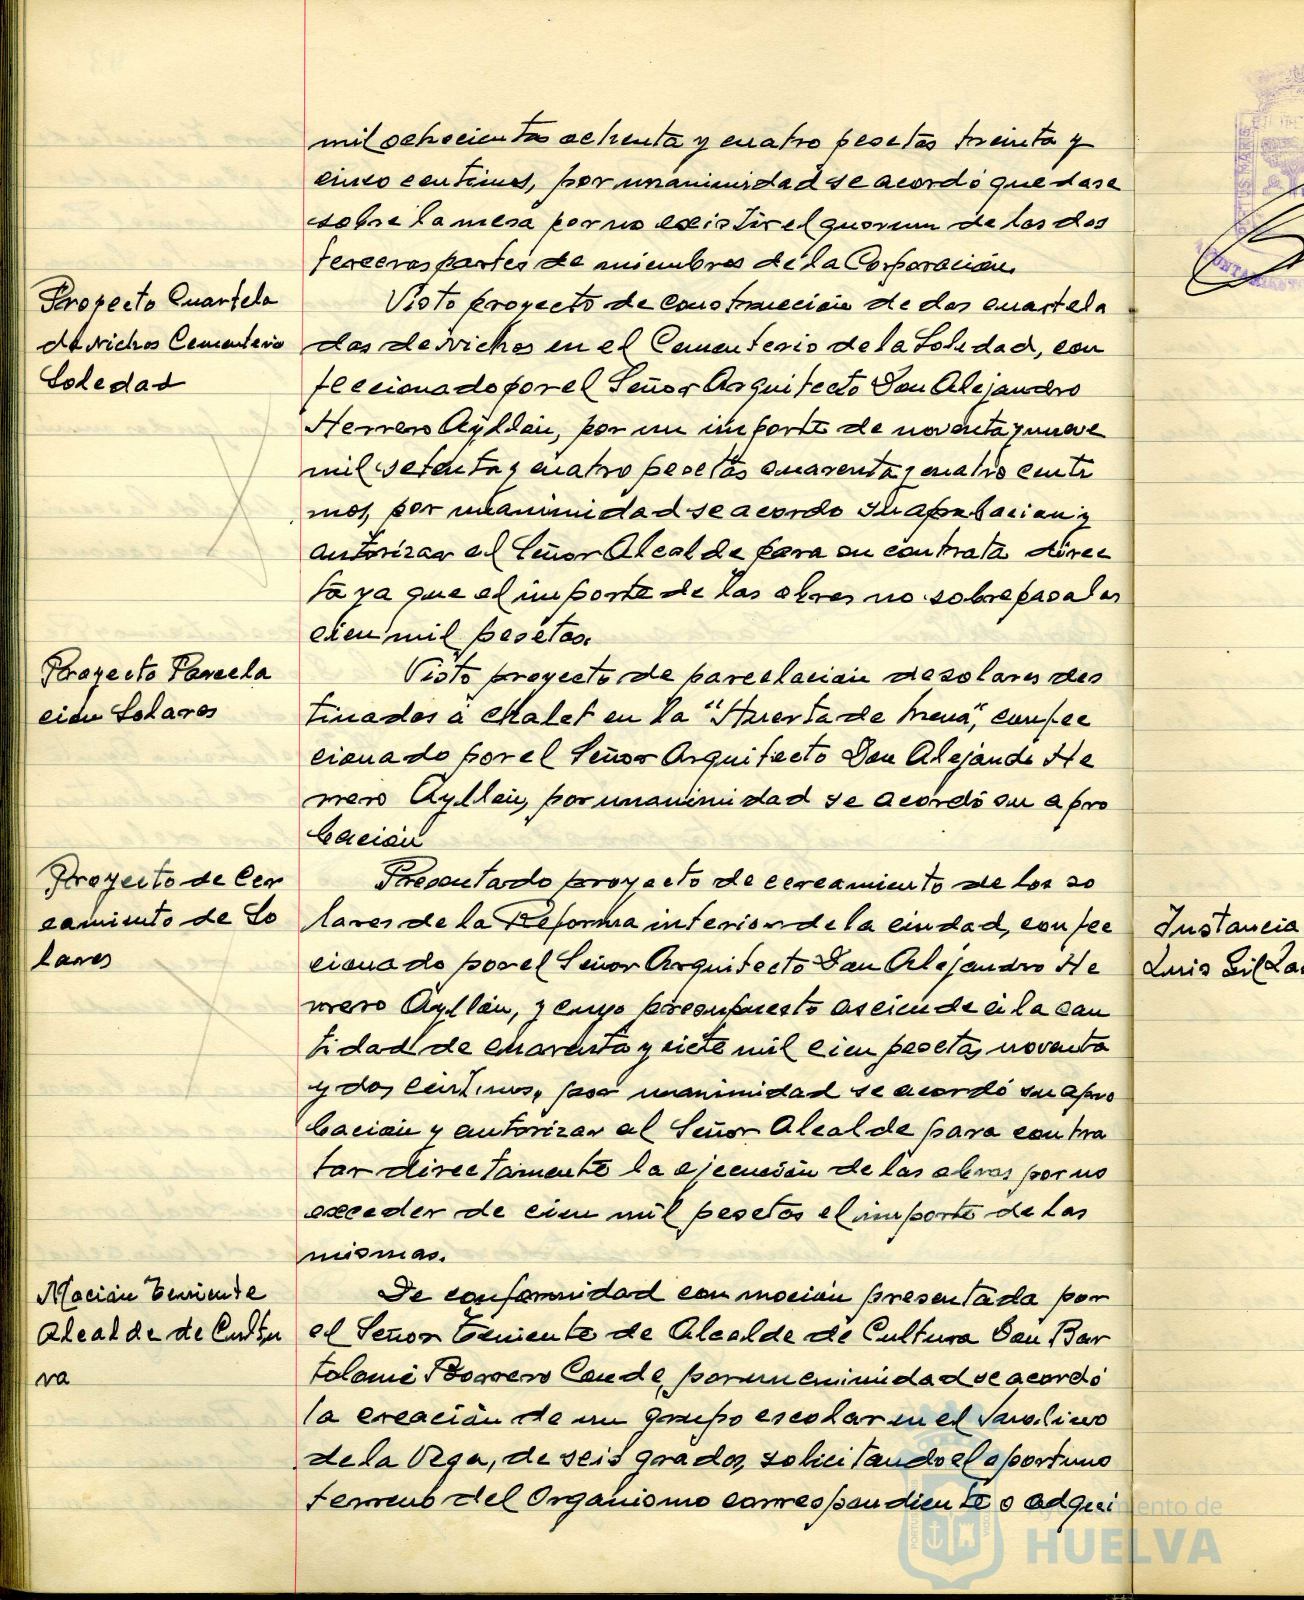 mil ochocientas ochenta y cuatro pesetas treinta y
cinco centimos, por unanimidad se acordó quedase
sobre la mesa por no existir el quorum de las dos
terceras partes de miembros de la Corporación.
Proyecto Cuartela
da nichos Cementerio
Soledad
Visto proyecto de construcción de dos cuartela
das de nichos en el Cementerio de la Soledad, con
feccionado por el Señor Arquitecto Don Alejandro
Herrero Ayllón, por un importe de noventa y nueve
mil setenta y cuatro pesetas cuarenta y cuatro centi
mos, por unanimidad se acordo su aprobacion y
autorizar al Señor Alcalde para su contrata direc
ta ya que el importe de las obras no sobrepasa las
cien mil pesetas.
Proyecto Parcela
ción Solares
Visto proyecto de parcelación de solares des
tinados a chalet en la "Huerta de Mena", confec
cionado por el Señor Arquitecto Don Alejando He
rrero Ayllón, por unanimidad se acordó su apro
bación
Proyecto de Cer
camiento de So
lares
Presentado proyecto de cercamiento de los so
lares de la Reforma interior de la ciudad, confec
cionado por el Señor Arquitecto Don Alejandro He
rrero Ayllón, y cuyo presupuesto asciende a la can
tidad de cuarenta y siete mil cien pesetas noventa
y dos centimos, por unanimidad se acordó su apro
bación y autorizar al Señor Alcalde para contra
tar directamente la ejecución de las obras por no
exceder de cien mil pesetas el importe de las
mismas.
Moción Teniente
Alcalde de Cultu
ra
De conformidad con moción presentada por
el Señor Teniente de Alcalde de Cultura Don Bar
tolomé Borrero Conde, por unanimidad se acordó
la creación de un grupo escolar en el
de la Vega, de seis grados, solicitando el oportuno
terreno del Organismo correspondiente o adqui
Instancia
Luis Gil
Ayuntamiento de
HUELVA